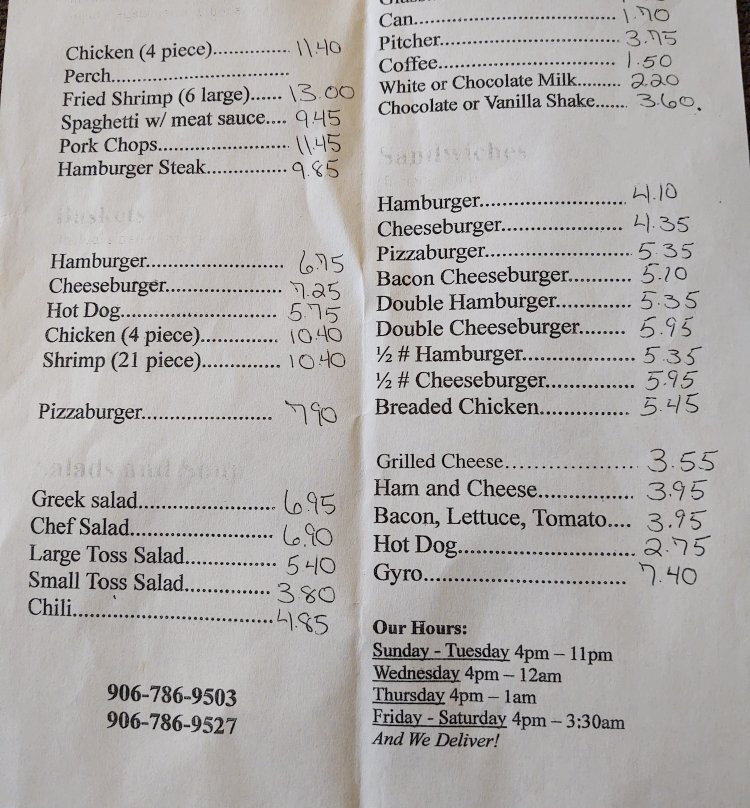 Chicken (4 piece).................. 11.40
Perch.........................................
Fried Shrimp (6 large)...... 13.00
Spaghetti w/ meat sauce.... 9.45
Pork Chops......................... 11.45
Hamburger Steak............... 9.85
Baskets
Hamburger.......................... 6.75
Cheeseburger...................... 7.25
Hot Dog.............................. 5.75
Chicken (4 piece)............... 10.40
Shrimp (21 piece)............... 10.40
Pizzaburger......................... 7.90
Salads and Soup
Greek salad.......................... 6.95
Chef Salad........................... 6.90
Large Toss Salad................. 5.40
Small Toss Salad................. 3.80
Chili..................................... 4.85
906-786-9503
906-786-9527
Can...................................... 1.70
Pitcher.................................. 3.75
Coffee................................... 1.50
White or Chocolate Milk......... 2.20
Chocolate or Vanilla Shake...... 3.60
Sandwiches
Hamburger.......................... 4.10
Cheeseburger...................... 4.35
Pizzaburger......................... 5.35
Bacon Cheeseburger............ 5.10
Double Hamburger.............. 5.35
Double Cheeseburger........ 5.95
½ # Hamburger.................... 5.35
½ # Cheeseburger................ 5.95
Breaded Chicken................ 5.45
Grilled Cheese........................ 3.55
Ham and Cheese................. 3.95
Bacon, Lettuce, Tomato.... 3.95
Hot Dog............................... 2.75
Gyro..................................... 7.40
Our Hours:
Sunday - Tuesday 4pm – 11pm
Wednesday 4pm – 12am
Thursday 4pm – 1am
Friday - Saturday 4pm – 3:30am
And We Deliver!